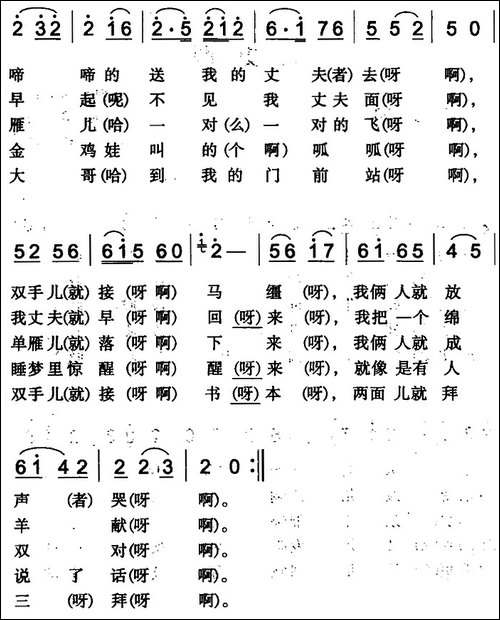 2 32 | 2 16 | 2·5 212 | 6·1 76 | 5 5 2 | 5 0 |
啼 啼的 送 我的 丈 夫(者) 去(呀 啊),
早 起(呢) 不 见 我 丈夫 面(呀 啊),
雁 儿(哈) 一 对(么) 一 对的 飞(呀 啊),
金 鸡娃 叫 的(个 啊) 呱 呱(呀 啊),
大 哥(哈) 到 我的 门 前 站(呀 啊),
52 56 | 615 60 | 2 — | 56 17 | 61 65 | 4 5 |
双手 儿(就) 接 (呀 啊) 马 缰 (呀), 我俩 人就 放
我丈 夫(就) 早 (呀 啊) 回 (呀) 来 (呀), 我把 一个 绵
单雁 儿(就) 落 (呀 啊) 下 来 (呀), 我俩 人就 成
睡梦 里惊 醒 (呀 啊) 醒 (呀) 来 (呀), 就像 是有 人
双手 儿(就) 接 (呀 啊) 书 (呀) 本 (呀), 两面 儿就 拜
61 42 | 2 2 3 | 2 0 :‖
声 (者) 哭(呀 啊)。
羊 献(呀 啊)。
双 对(呀 啊)。
说 了 话(呀 啊)。
三 (呀) 拜(呀 啊)。